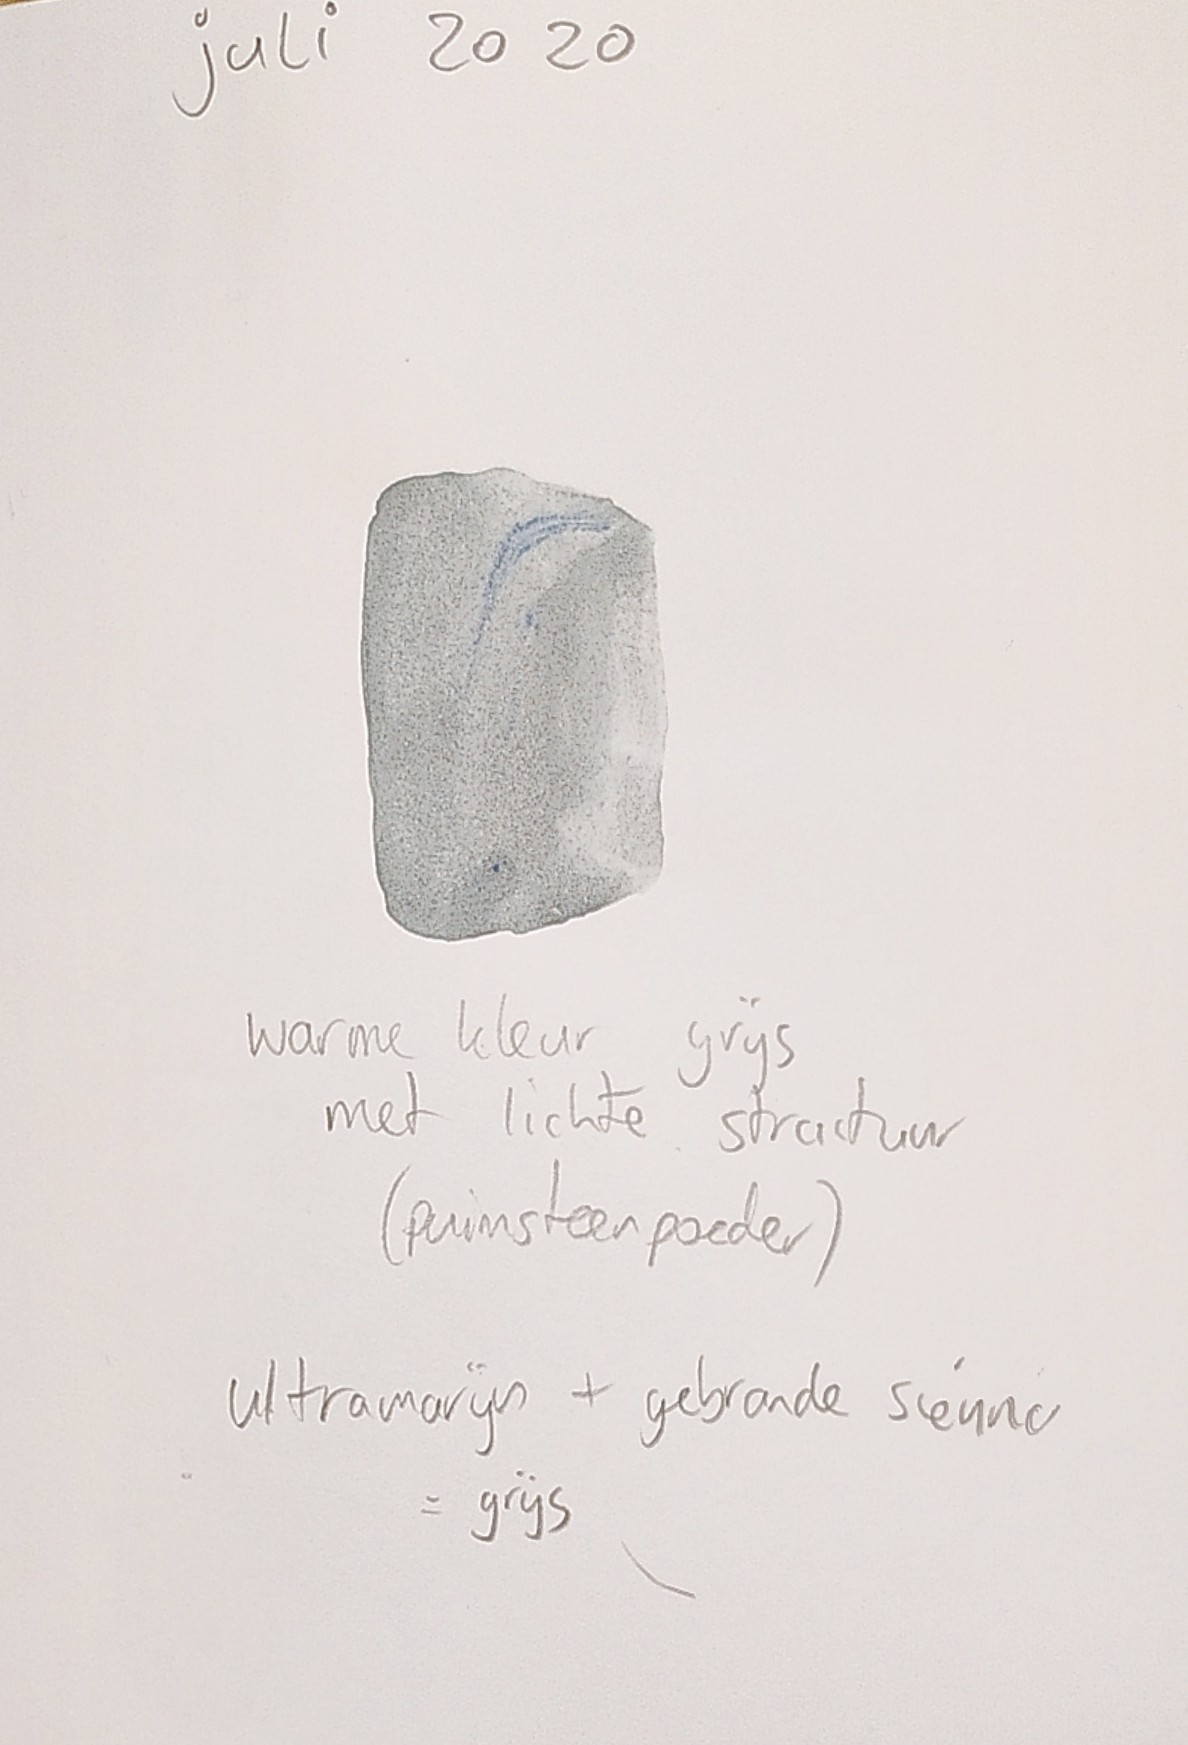 juli 2020
warme kleur grijs
met lichte structuur
(puimsteenpoeder)
ultramarijn + gebrande siënna
= grijs